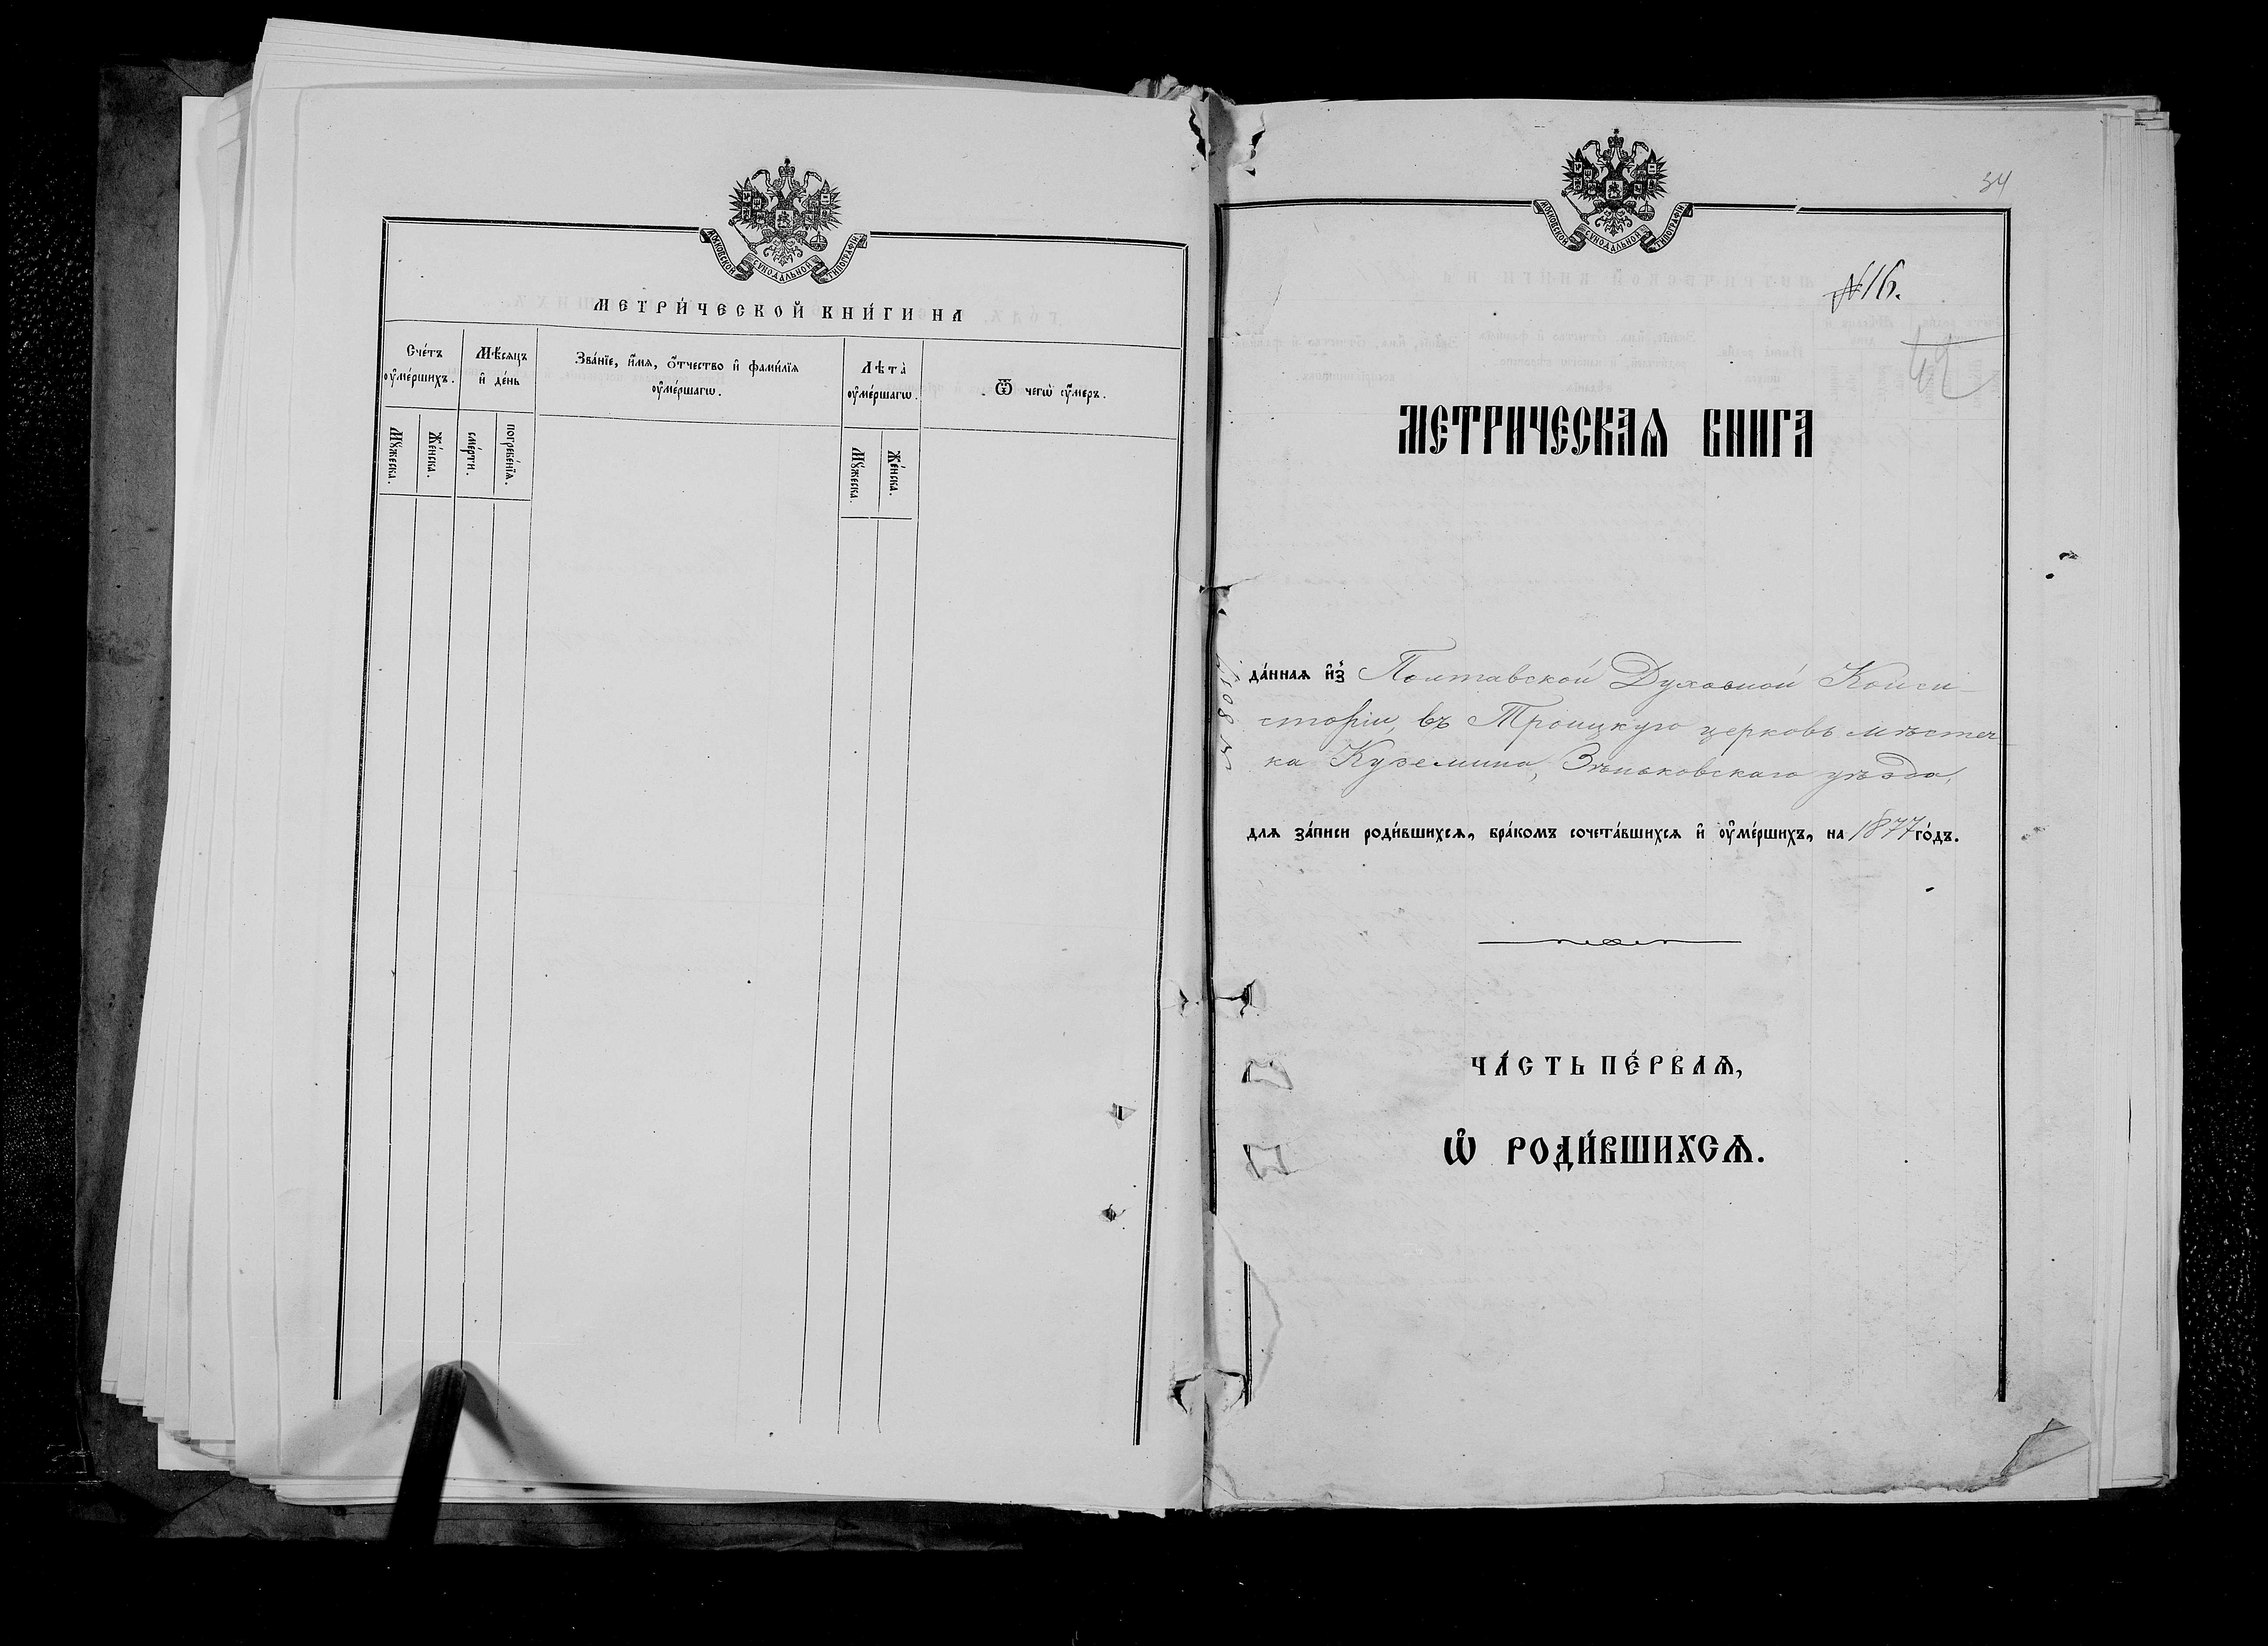 МОСКОВСКОЙ СѴНОДАЛЬНОЙ ТИПОГРАФІИ
МЕТРИ́ЧЕСКОЙ КНИ́ГИ НА
Сче́тъ оу҆ме́ршихъ.
Мѣ́сяцъ и҆ де́нь
Зва́нїе, и҆́мѧ, ѻ҆́тчество и҆ фами́лїѧ оу҆ме́ршагѡ.
Лѣта̀ оу҆ме́ршагѡ.
Ѿ чегѡ̀ оу҆́меръ.
Мꙋ́жеска.
Же́нска.
сме́рти.
погребе́нїѧ.
Мꙋ́жеска.
Же́нска.
34
МОСКОВСКОЙ СѴНОДАЛЬНОЙ ТИПОГРАФІИ
№16.
МЕТРИЧЕСКАѦ КНИГА
да́ннаѧ и҆з̾ Полтавской Духовной Конси-
сторіи, въ Троицкую церковь мѣстеч-
ка Куземина, Зѣньковскаго уѣзда,
для за́писи роди́вшихсѧ, бра́комъ сочета́вшихсѧ и҆ оу҆ме́ршихъ, на 1877 го́дъ.
ЧА́СТЬ ПЕ́РВАѦ,
Ѡ҆ РОДИ́ВШИХСѦ.